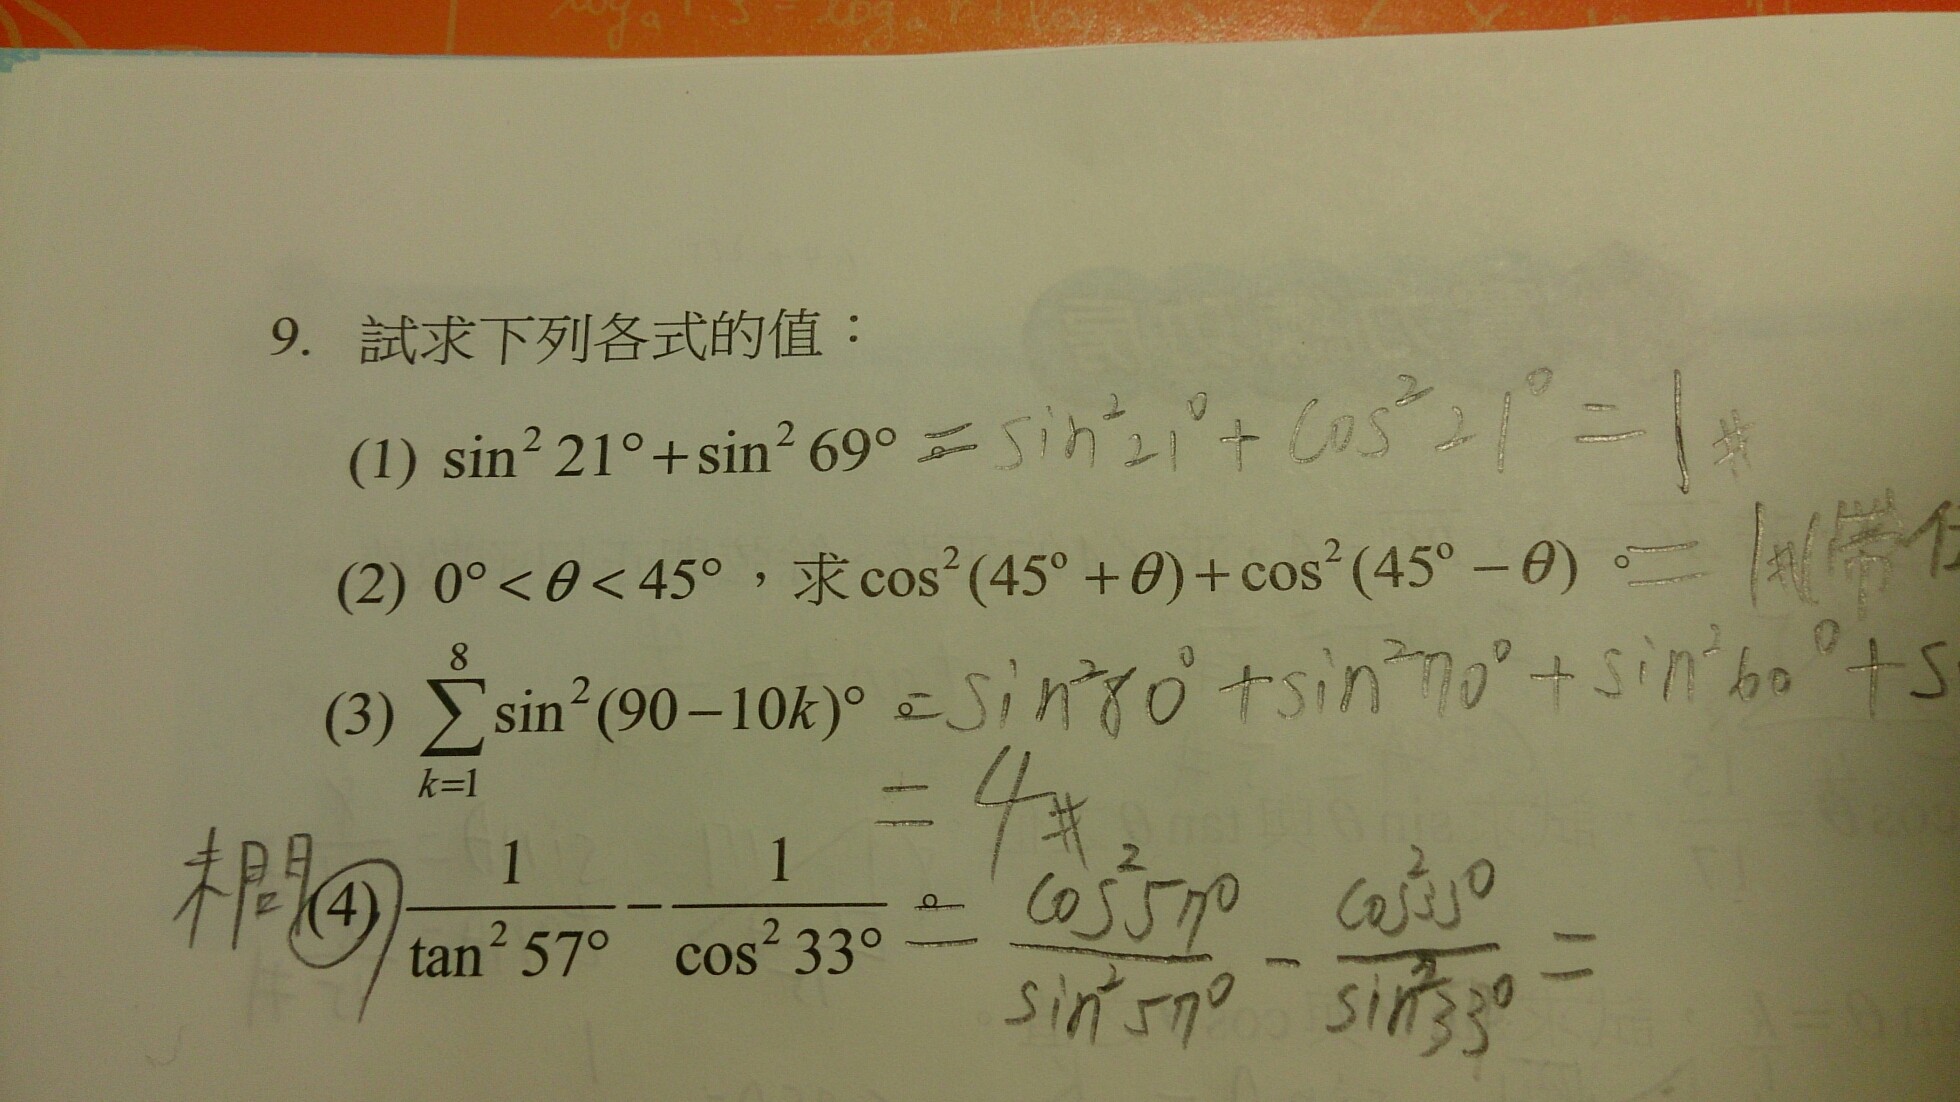 9. 試求下列各式的值：
(1) sin² 21° + sin² 69° = sin² 21° + cos² 21° = 1 #
(2) 0° < θ < 45°，求 cos² (45° + θ) + cos² (45° − θ)。 = 1 # (帶
(3) ∑_{k=1}^{8} sin² (90 − 10k)°。 = sin² 80° + sin² 70° + sin² 60° + s
= 4 #
(4) 1/(tan² 57°) − 1/(cos² 33°)。 = cos² 57°/sin² 57° − cos² 33°/sin² 33° =